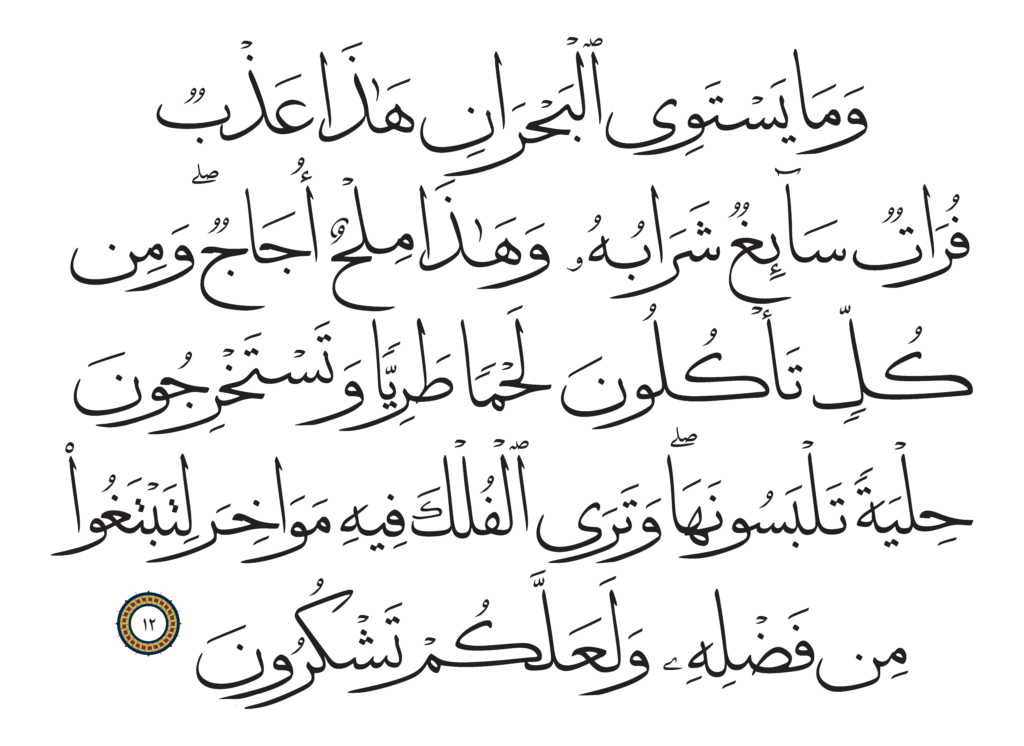 وَمَا يَسْتَوِى ٱلْبَحْرَانِ هَٰذَا عَذْبٌ
فُرَاتٌ سَآئِغٌ شَرَابُهُۥ وَهَٰذَا مِلْحٌ أُجَاجٌ ۖ وَمِن
كُلٍّ تَأْكُلُونَ لَحْمًا طَرِيًّا وَتَسْتَخْرِجُونَ
حِلْيَةً تَلْبَسُونَهَا ۖ وَتَرَى ٱلْفُلْكَ فِيهِ مَوَاخِرَ لِتَبْتَغُوا۟
مِن فَضْلِهِۦ وَلَعَلَّكُمْ تَشْكُرُونَ ١٢